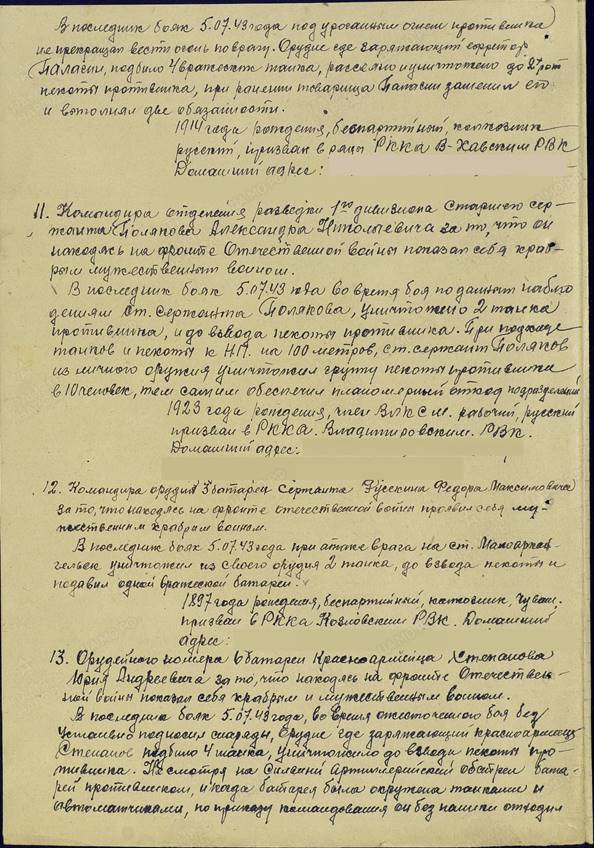 В последних боях 5.07.43 года под ураганным огнем противника
не прекращал вести огонь по врагу. Орудие где заряжающий ефрейтор
Паласин, подбило 4 вражеских танка, рассеяно и уничтожено до 2х рот
пехоты противника, при ранении товарища Паласин заменил его
и выполнял две обязанности.
1914 года рождения, беспартийный, колхозник
русский, призван в ряды РККА В-Хавским РВК
Домашний адрес:
11. Командира отделения разведки 1го дивизиона Старшего сер-
жанта Полякова Александра за то, что он
находясь на фронте Отечественной войны показал себя храб-
рым мужественным воином.
В последних боях 5.07.43 года во время боя по данным наблю
дениям ст. сержанта Полякова, уничтожено 2 танка
противника, и до взвода пехоты противника. При подходе
танков и пехоты к Н.П. на 100 метров, ст. сержант Поляков
из личного оружия уничтожил группу пехоты противника
в 10 человек, тем самим обеспечил планомерный отход подразделений
1923 года рождения, член ВЛКСМ. рабочий, русский
призван в РККА. Владимировским. РВК.
Домашний адрес:
12. Командира орудия 3 батареи Сержанта Федора Максимовича
за то, что находясь на фронте отечественной войны проявил себя му-
жественным храбрым воином.
В последних боях 5.07.43 года при атаке врага на ст.
уничтожил из своего орудия 2 танка, до взвода пехоты и
подавил одной вражеской батареи.
1897 года рождения, беспартийный, колхозник, чуваш.
призван в РККА Козловским РВК. Домашний
адрес:
13. Орудейного номера 6 батареи Красноармейца Степанова
Юрия Андреевича за то, что находясь на фронте Отечествен-
ной войны показал себя храбрым и мужественным воином.
В последних боях 5.07.43 года, во время ожесточенного боя без
устально подносил снаряды, орудие где заряжающий красноармеец
Степанов подбило 4 танка, уничтожило до взвода пехоты про-
тивника. Не смотря на сильный артиллерийский обстрел бата-
рей противником, и когда батарея была окружена танками и
автоматчиками, по приказу командования он без паники отходил